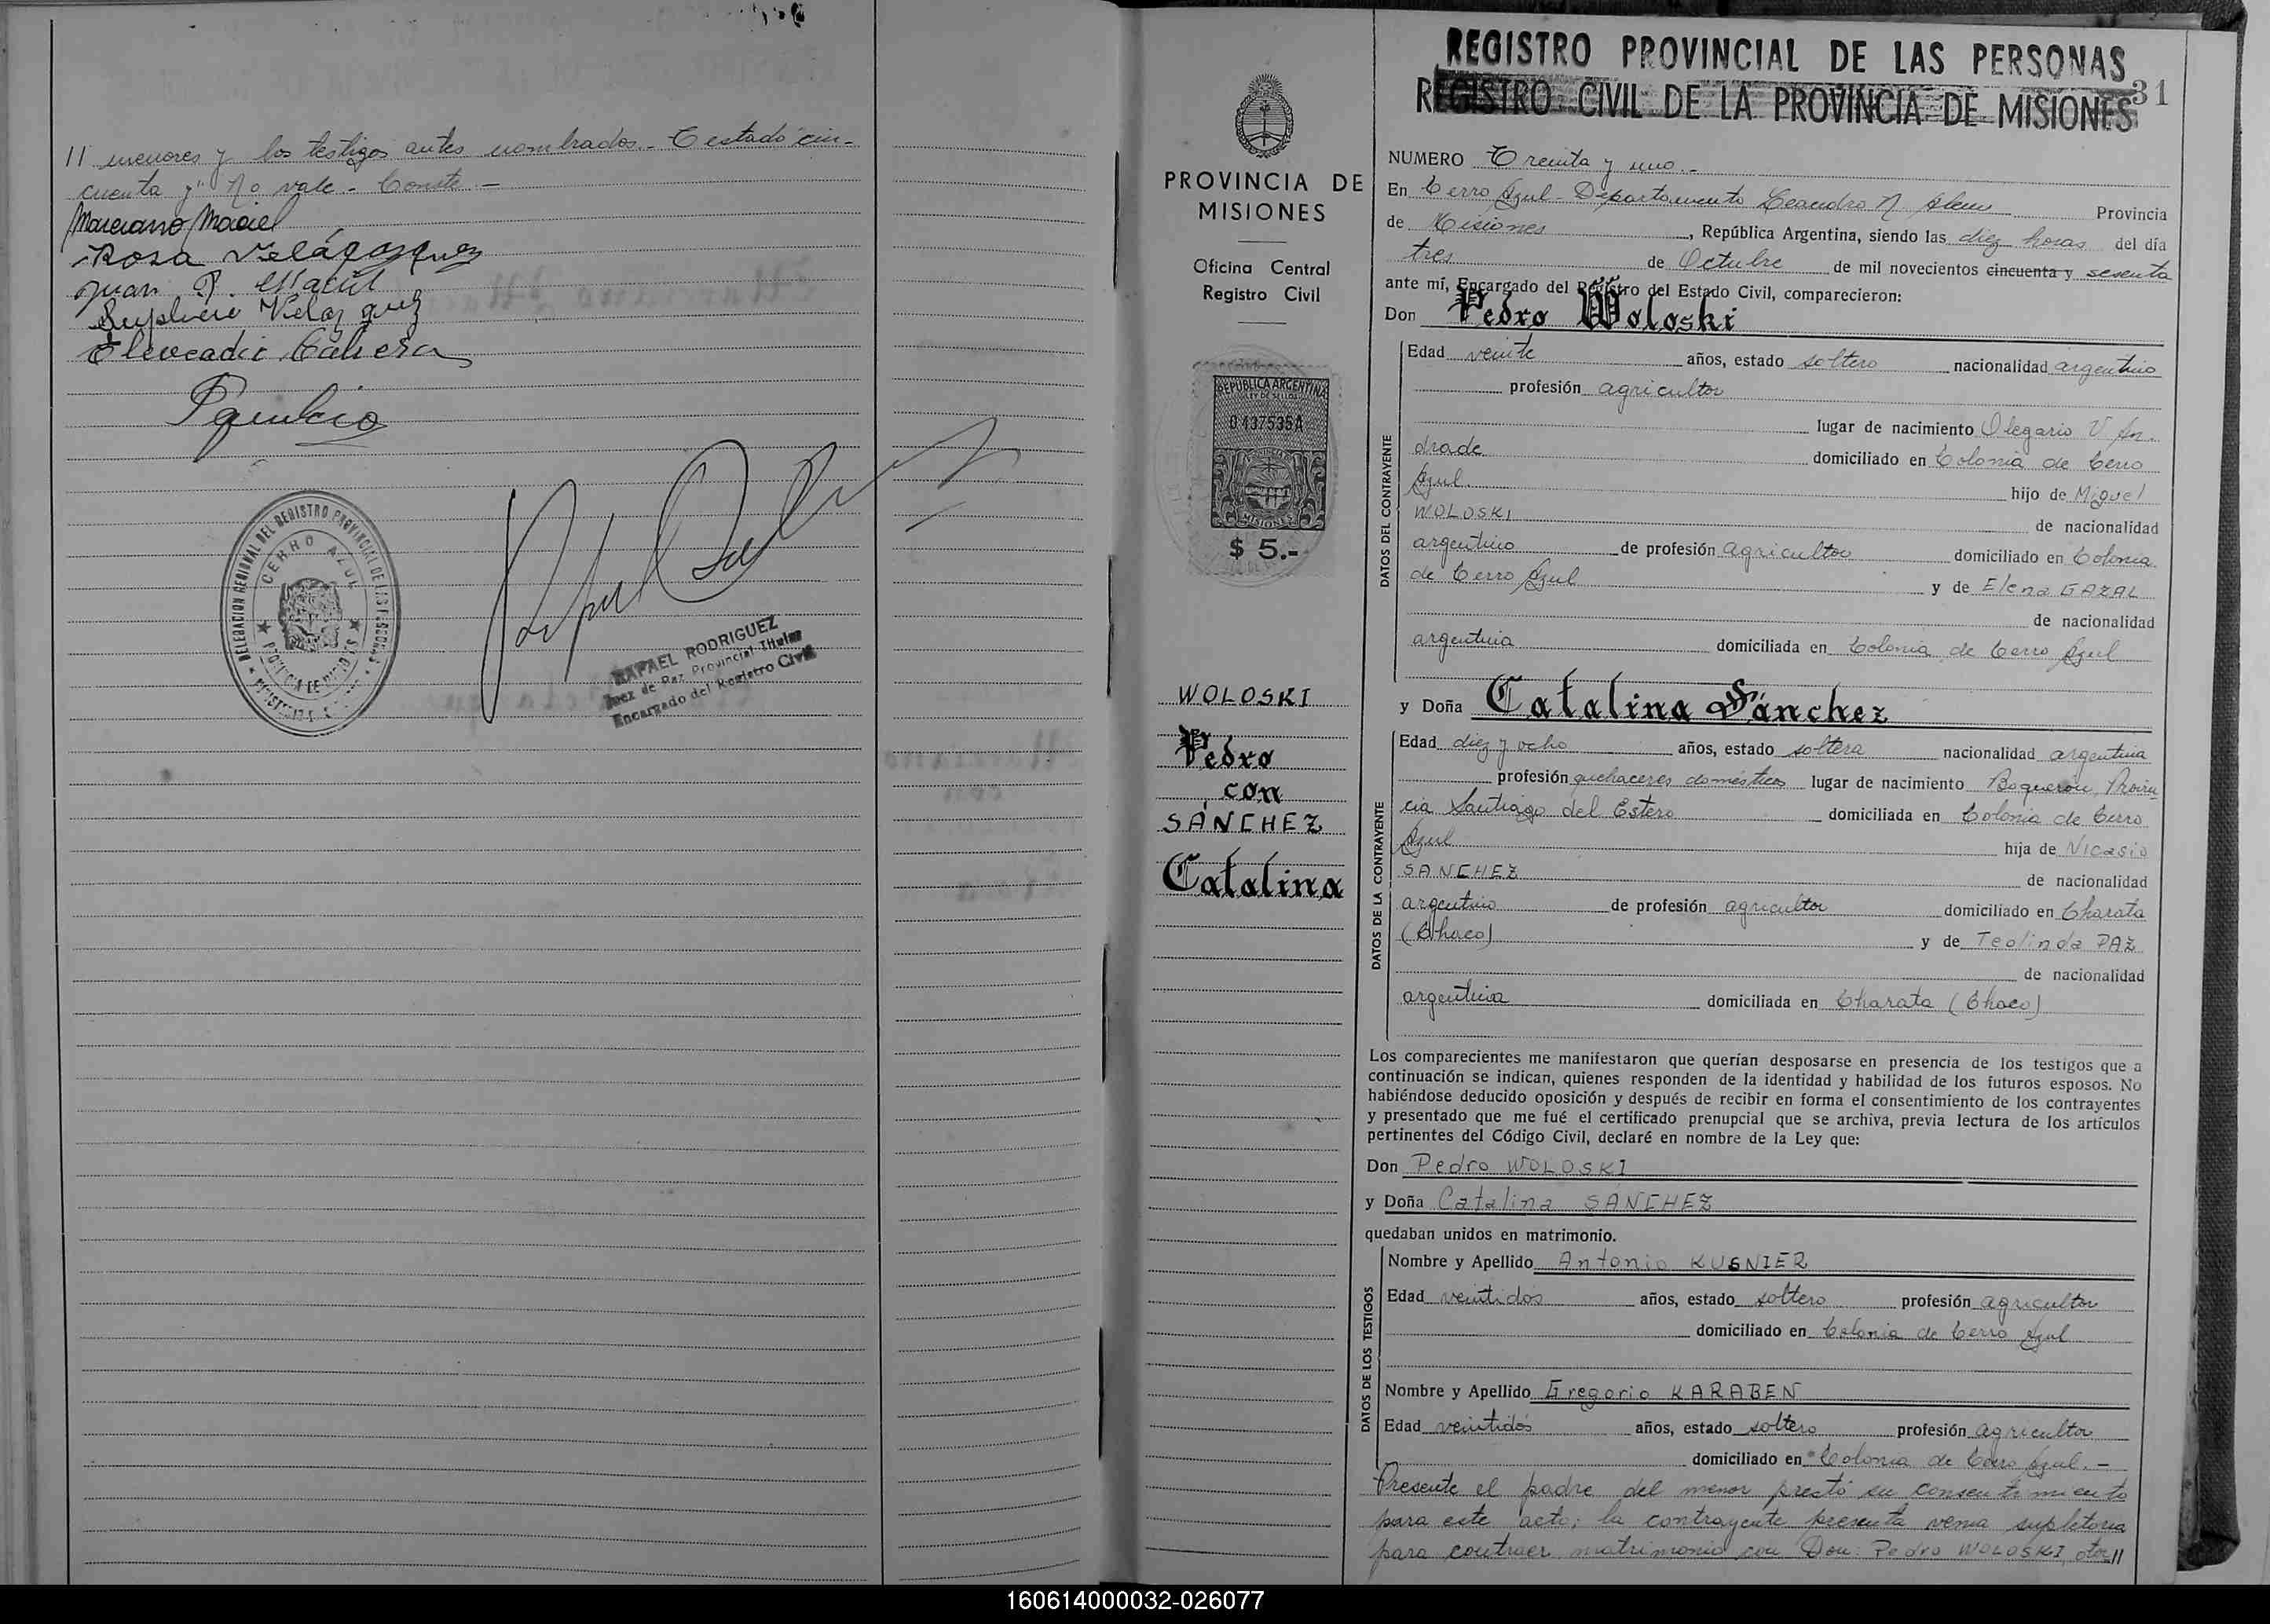 // menores y los testigos antes nombrados.- Testado "cin-
cuenta y" No vale - Conste.-
Marciano Maciel
Rosa Velázquez
Juan
Velazquez
Cabrera
DELEGACION REGIONAL DEL REGISTRO PROVINCIAL DE LAS PERSONAS
CERRO AZUL
PROVINCIA DE MISIONES
RAFAEL RODRIGUEZ
Juez de Paz Provincial Titular
Encargado del Registro Civil
PROVINCIA DE
MISIONES
Oficina Central
Registro Civil
REPUBLICA ARGENTINA
LEY DE SELLOS
0437535A
MISIONES
$ 5.-
WOLOSKI
Pedro
con
SÁNCHEZ
Catalina
REGISTRO PROVINCIAL DE LAS PERSONAS
REGISTRO CIVIL DE LA PROVINCIA DE MISIONES
31
NUMERO Treinta y uno.-
En Cerro Azul - Departamento Leandro N Alem Provincia
de Misiones, República Argentina, siendo las diez horas del día
tres de Octubre de mil novecientos cincuenta y sesenta
ante mí, Encargado del Registro del Estado Civil, comparecieron:
Don Pedro Woloski
DATOS DEL CONTRAYENTE
Edad veinte años, estado soltero nacionalidad argentino
profesión agricultor
lugar de nacimiento Olegario V An-
drade domiciliado en Colonia de Cerro
Azul hijo de Miguel
WOLOSKI de nacionalidad
argentino de profesión agricultor domiciliado en Colonia
de Cerro Azul y de Elena GAZAL
de nacionalidad
argentina domiciliada en Colonia de Cerro Azul
y Doña Catalina Sánchez
DATOS DE LA CONTRAYENTE
Edad diez y ocho años, estado soltera nacionalidad argentina
profesión quehaceres domésticos lugar de nacimiento Boquerón, Provin
cia Santiago del Estero domiciliada en Colonia de Cerro
Azul hija de Nicasio
SANCHEZ de nacionalidad
argentino de profesión agricultor domiciliado en Charata
(Chaco) y de Teolinda PAZ
de nacionalidad
argentina domiciliada en Charata (Chaco)
Los comparecientes me manifestaron que querían desposarse en presencia de los testigos que a
continuación se indican, quienes responden de la identidad y habilidad de los futuros esposos. No
habiéndose deducido oposición y después de recibir en forma el consentimiento de los contrayentes
y presentado que me fué el certificado prenupcial que se archiva, previa lectura de los artículos
pertinentes del Código Civil, declaré en nombre de la Ley que:
Don Pedro WOLOSKI
y Doña Catalina SÁNCHEZ
quedaban unidos en matrimonio.
DATOS DE LOS TESTIGOS
Nombre y Apellido Antonio KUSNIER
Edad veintidos años, estado soltero profesión agricultor
domiciliado en Colonia de Cerro Azul
Nombre y Apellido Gregorio KARABEN
Edad veintidós años, estado soltero profesión agricultor
domiciliado en Colonia de Cerro Azul.-
Presente el padre del menor prestó su consentimiento
para este acto; la contrayente presenta venia supletoria
para contraer matrimonio con Don: Pedro WOLOSKI, otor//
160614000032-026077